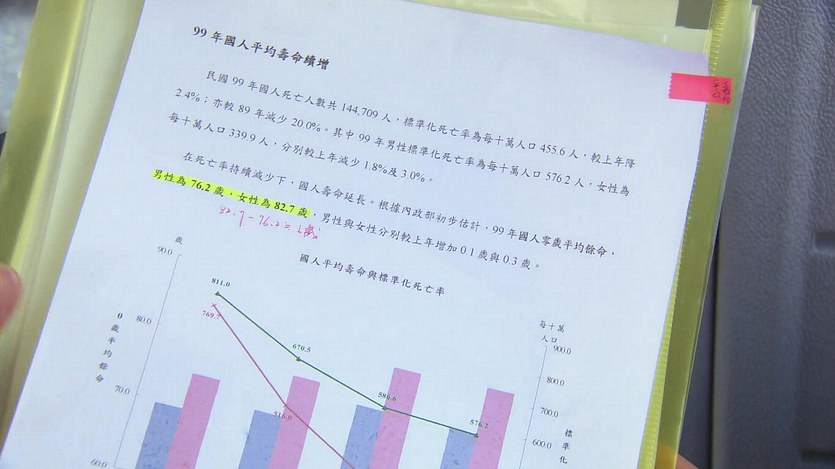 99 年國人平均壽命續增
民國 99 年國人死亡人數共 144,709 人，標準化死亡率為每十萬人口 455.6 人，較上年降
2.4%；亦較 89 年減少 20.0%。其中 99 年男性標準化死亡率為每十萬人口 576.2 人，女性為
每十萬人口 339.9 人，分別較上年減少 1.8%及 3.0%。
在死亡率持續減少下，國人壽命延長。根據內政部初步估計，99 年國人零歲平均餘命，
男性為 76.2 歲，女性為 82.7 歲，男性與女性分別較上年增加 0.1 歲與 0.3 歲。
82.7-76.2=6歲
國人平均壽命與標準化死亡率
歲
每十萬
人口
90.0
80.0
70.0
60.0
0
歲
平
均
餘
命
811.0
769.7
670.5
516.0
586.6
576.2
900.0
800.0
700.0
600.0
標
準
化